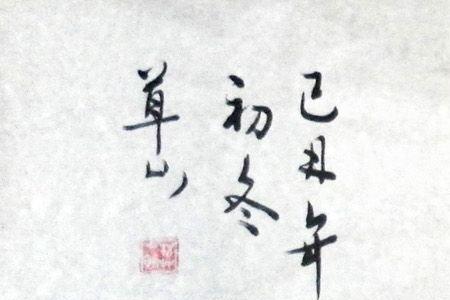 己丑年
初冬
草山